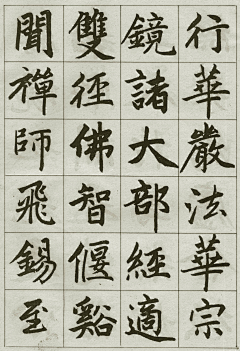 行華嚴法華宗
鏡諸大部經適
雙徑佛智偃谿
聞禪師飛錫至